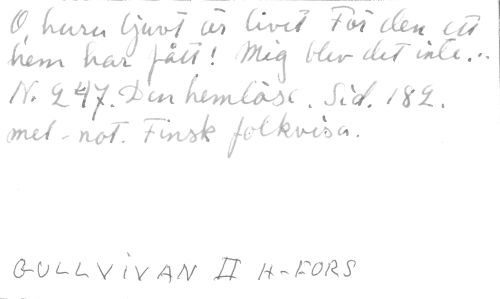 O, huru ljuvt är livet För den ett
hem har fått! Mig blev det inte...
N. 247. Den hemlöse. Sid. 182.
mel-not. Finsk folkvisa.
GULLVIVAN II H-FORS